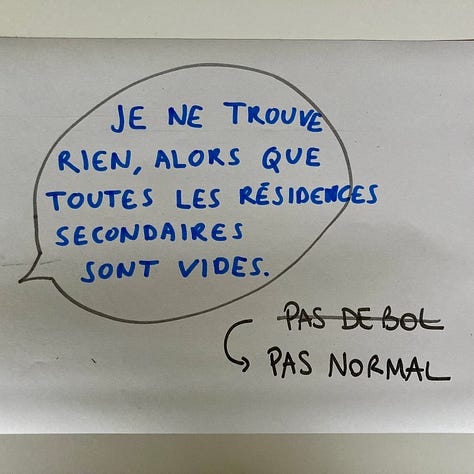 JE NE TROUVE
RIEN, ALORS QUE
TOUTES LES RÉSIDENCES
SECONDAIRES
SONT VIDES.
PAS DE BOL
PAS NORMAL